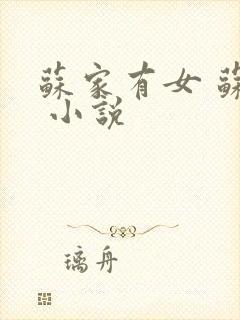 蘇家有女 蘇
小説
璃舟